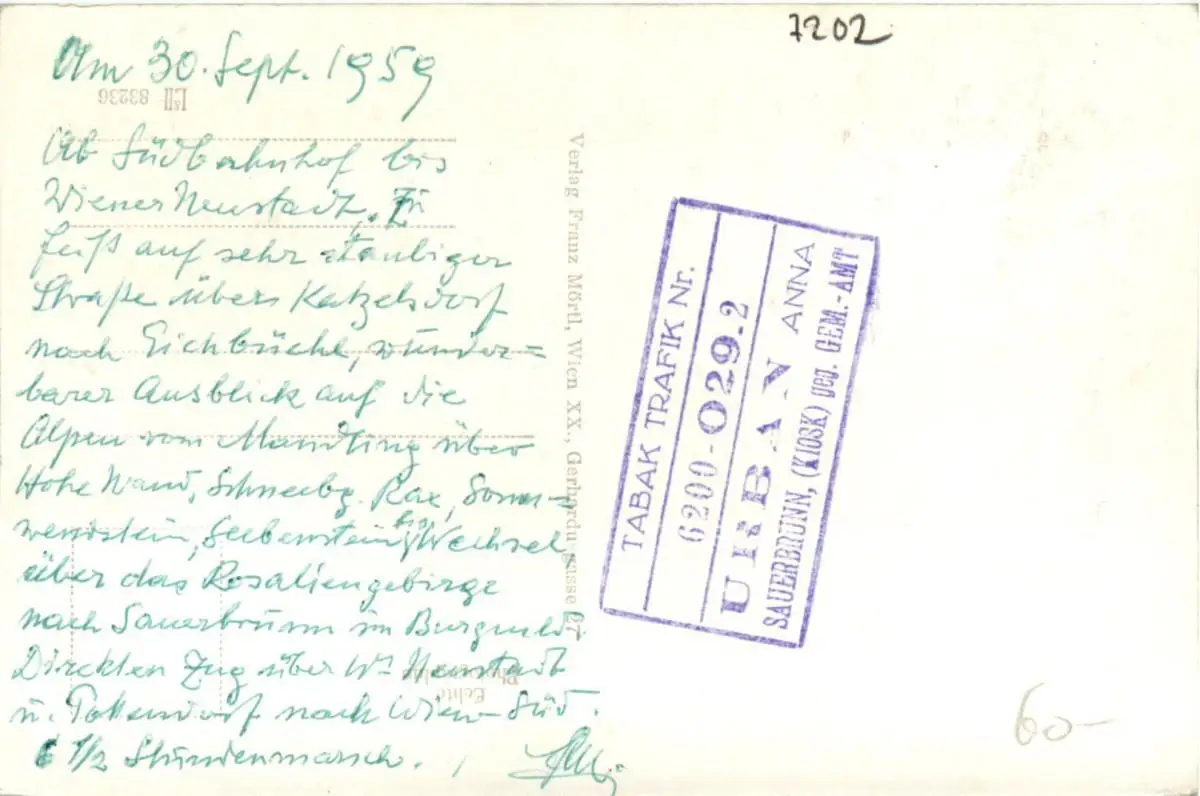 7202
Am 30. Sept. 1959
LªII 83236
Ab Südbahnhof bis
Wiener Neustadt, Zu
Fuß auf sehr staubiger
Straße über Katzelsdorf
nach Eichbüchl, wunder=
barer Ausblick auf die
Alpen vom Mandling über
Hohe Wand, Schneebg. Rax, Sonn=
wendstein, Seebenstein bis Wechsel
über das Rosaliengebirge
nach Sauerbrunn im Burgenld.
Direkten Zug über Wr Neustadt
u. Pottendorf nach Wien-Süd.
6 1/2 Stundenmarsch.
Verlag Franz Mörtl, Wien XX., Gerhardusgasse 27
Echte
TABAK TRAFIK Nr.
6200-029.2
URBAN ANNA
SAUERBRUNN, (KIOSK) geg. GEM.-AMT
60-